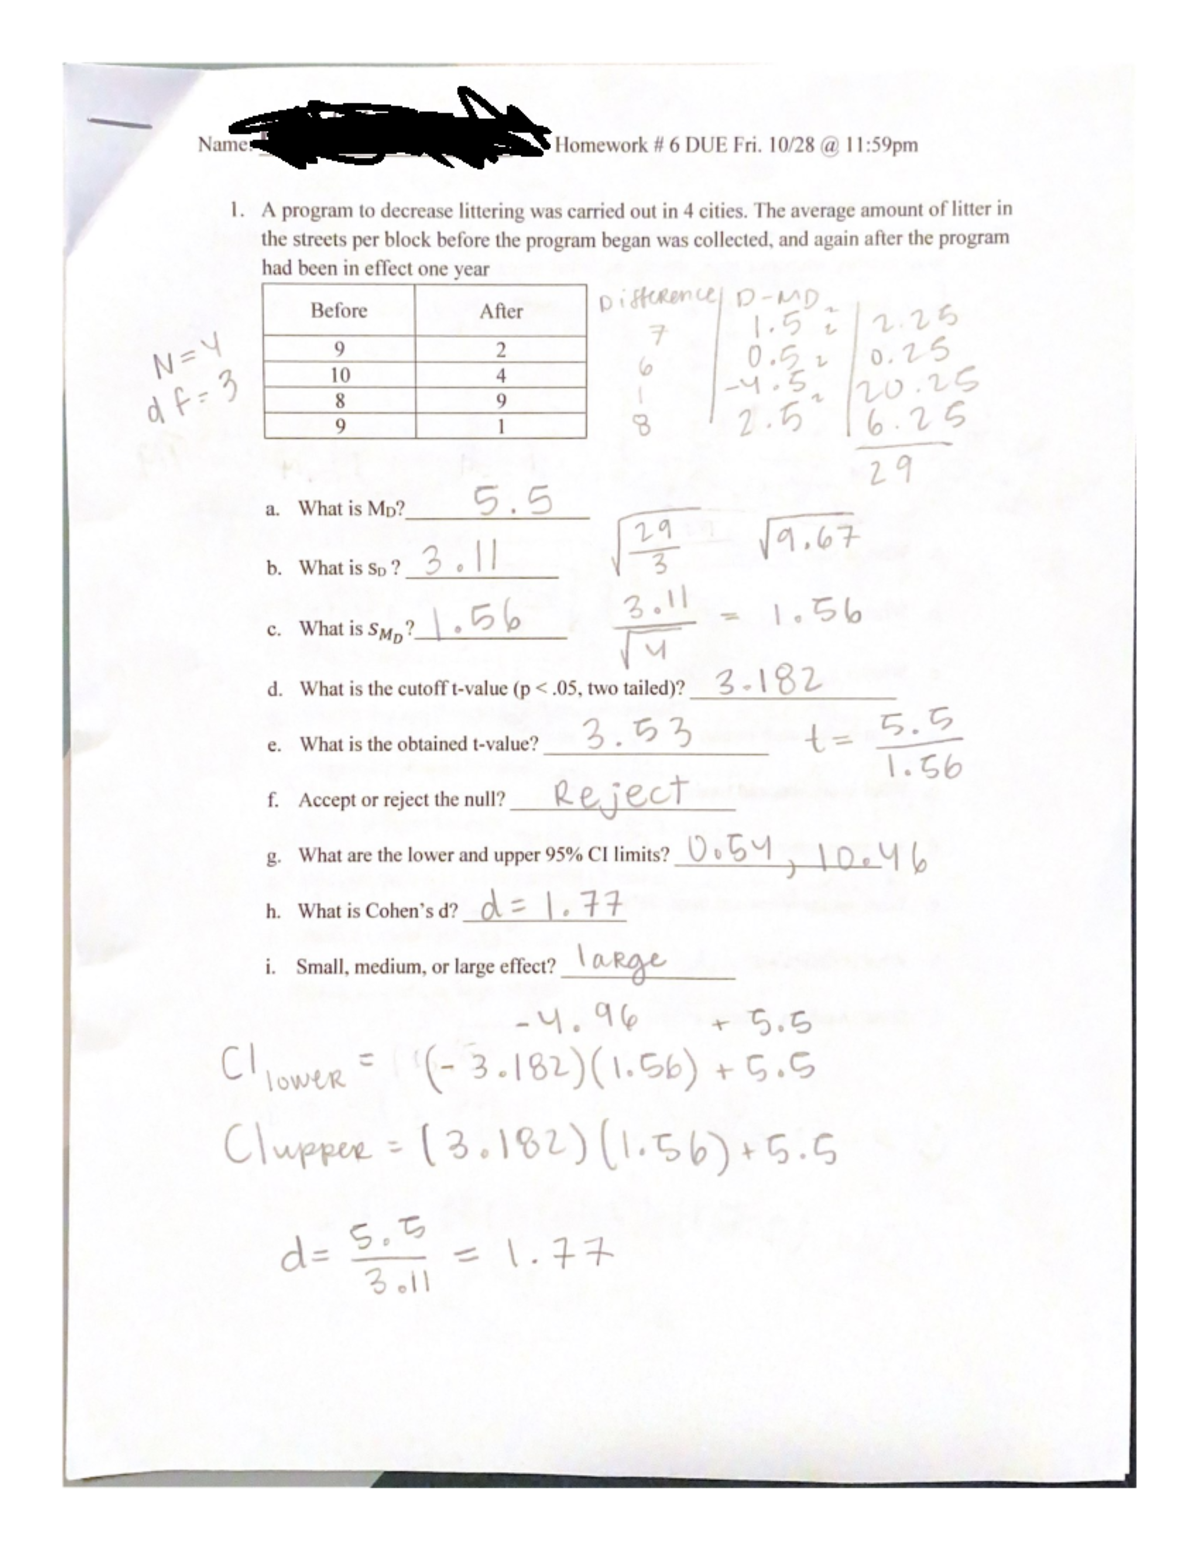 Name: Homework # 6 DUE Fri. 10/28 @ 11:59pm
1. A program to decrease littering was carried out in 4 cities. The average amount of litter in
the streets per block before the program began was collected, and again after the program
had been in effect one year
N=4
df=3
Before After
9 2
10 4
8 9
9 1
Difference D-MD
7 1.5² 2.25
6 0.5² 0.25
1 -4.5² 20.25
8 2.5² 6.25
29
a. What is MD? 5.5
b. What is SD ? 3.11 √29/3 √9.67
c. What is SMD? 1.56 3.11/√4 = 1.56
d. What is the cutoff t-value (p < .05, two tailed)? 3.182
e. What is the obtained t-value? 3.53 t= 5.5/1.56
f. Accept or reject the null? Reject
g. What are the lower and upper 95% CI limits? 0.54, 10.46
h. What is Cohen's d? d = 1.77
i. Small, medium, or large effect? large
-4.96 + 5.5
CI lower = (-3.182)(1.56) + 5.5
CI upper = (3.182)(1.56)+5.5
d= 5.5/3.11 = 1.77